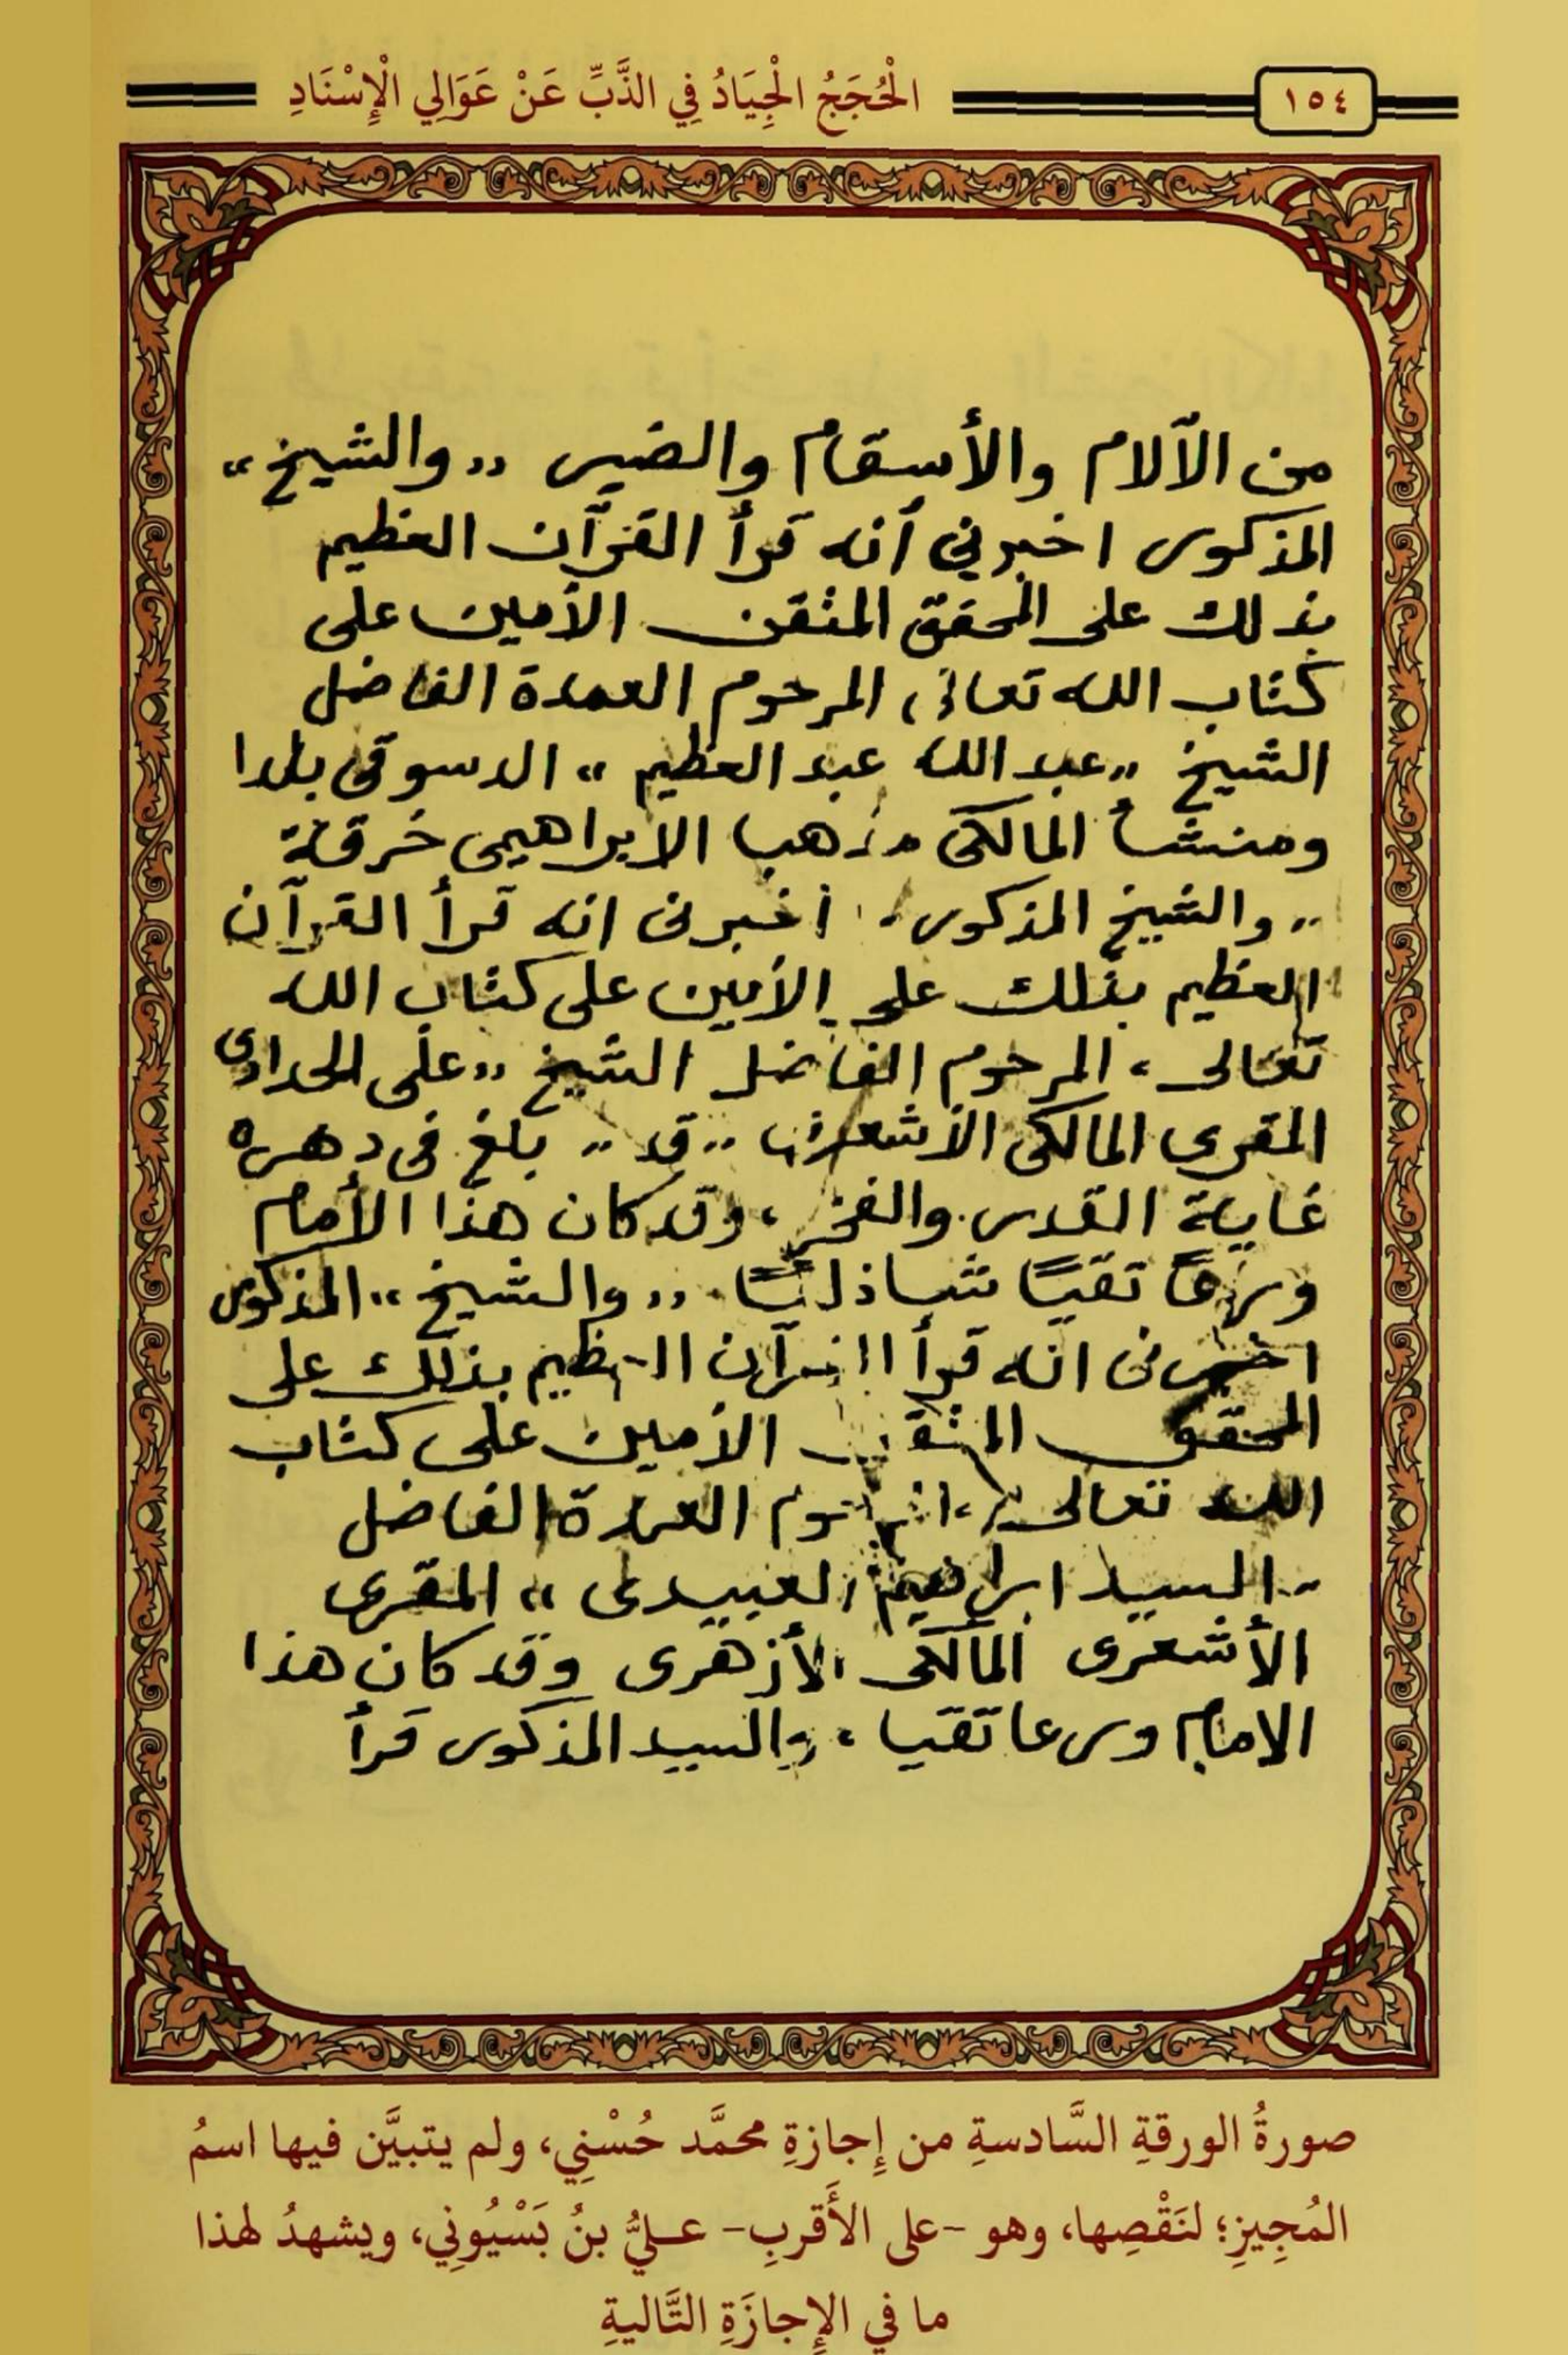 ١٥٤
الْحُجَجُ الْجِيَادُ فِي الذَّبِّ عَنْ عَوَالِي الْإِسْنَادِ
من الآلام والأسقام والضير ,, والشيخ ,,
المذكور اخبرني أنه قرأ القرآن العظيم
بذلك على المحقق المتقن الأمين على
كتاب الله تعالى، المرحوم العمدة الفاضل
الشيخ ,, عبد الله عبد العظيم ,, الدسوقى بلدا
ومنشأ المالكى مذهبا الابراهيمى خرقة
,, والشيخ المذكور، أخبرنى انه قرأ القرآن
العظيم بذلك على الأمين على كتاب الله
تعالى، المرحوم الفاضل الشيخ ,, على الحدادى
المقرى المالكى الأشعرى ,, قد ,, بلغ فى دهره
غاية القدر والفخر، وقد كان هذا الأمام
ورعًا تقيًا شاذليًا. ,, والشيخ ,, المذكور
اخبرنى انه قرأ القرآن العظيم بذلك على
المحقق المتقن الأمين على كتاب
الله تعالى، المرحوم العمدة الفاضل
,, السيد ابراهيم العبيدى ,, المقرى
الأشعرى المالكى الأزهرى وقد كان هذا
الامام ورعا تقيا، والسيد المذكور قرأ
صورةُ الورقةِ السَّادسةِ من إِجازةِ محمَّد حُسْنِي، ولم يتبيَّن فيها اسمُ
المُجِيزِ؛ لنَقْصِها، وهو -على الأَقربِ- عليُّ بنُ بَسْيُونِي، ويشهدُ لهذا
ما في الإِجازَةِ التَّاليةِ